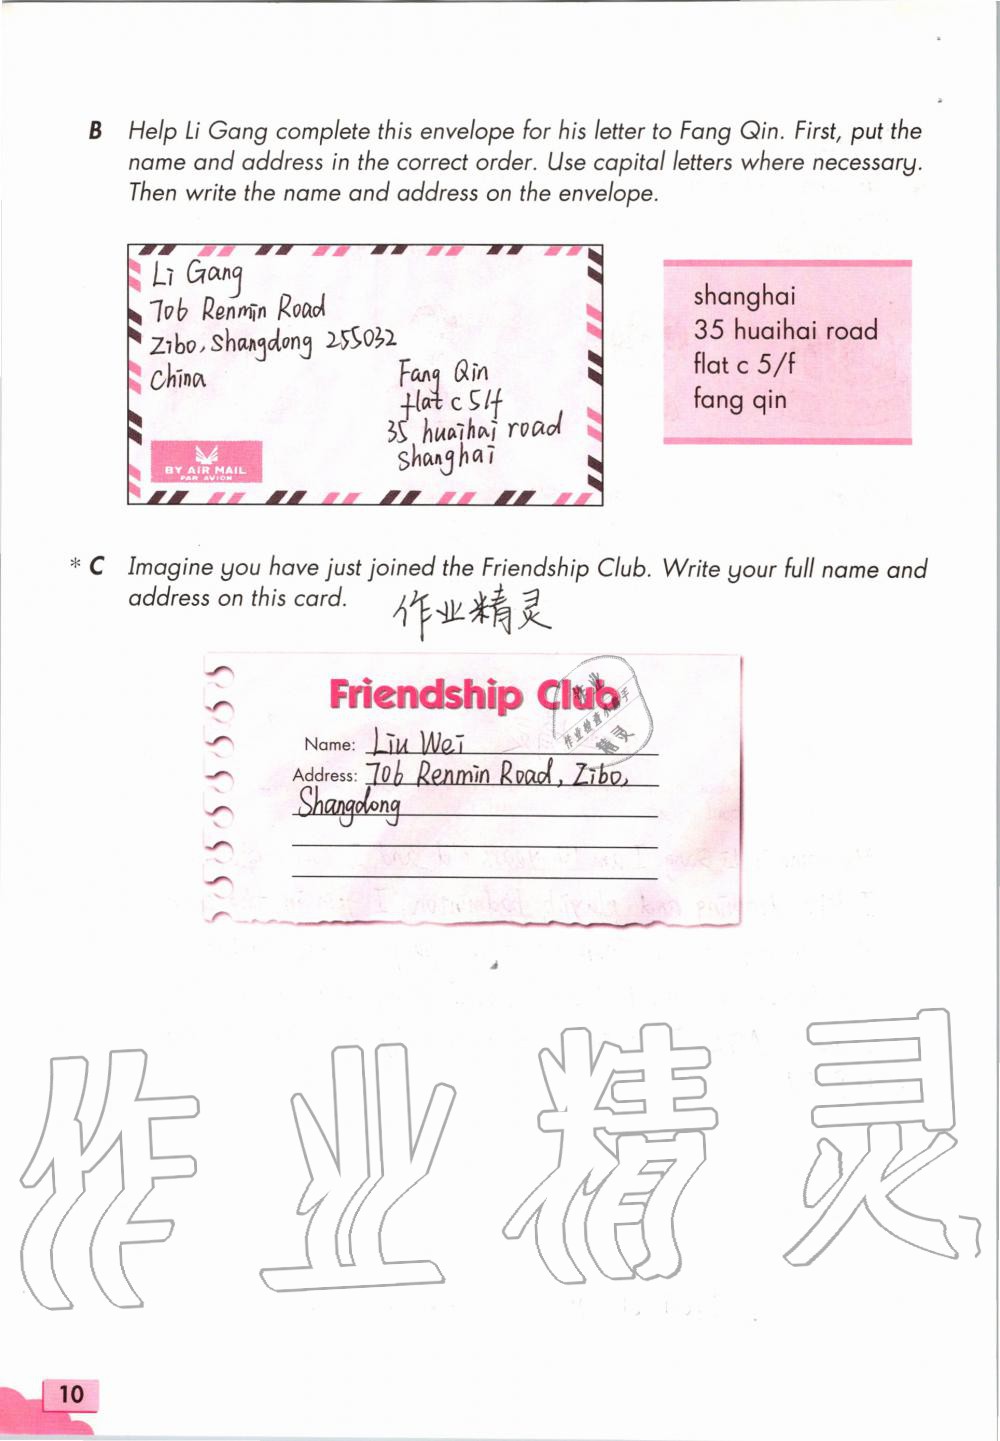 B Help Li Gang complete this envelope for his letter to Fang Qin. First, put the
name and address in the correct order. Use capital letters where necessary.
Then write the name and address on the envelope.
Li Gang
706 Renmin Road
Zibo, Shangdong 255032
China
Fang Qin
flat c 5/f
35 huaihai road
Shanghai
BY AIR MAIL
PAR AVION
shanghai
35 huaihai road
flat c 5/f
fang qin
* C Imagine you have just joined the Friendship Club. Write your full name and
address on this card.
作业精灵
Friendship Club
Name: Liu Wei
Address: 706 Renmin Road, Zibo,
Shangdong
作业精灵
10